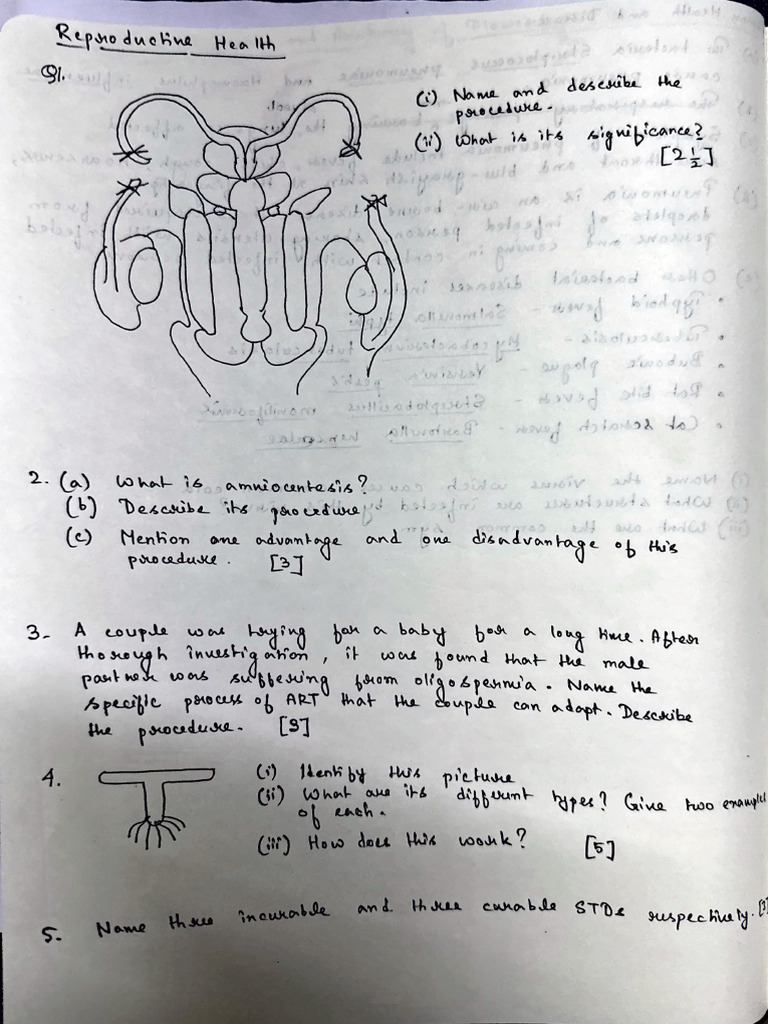 Reproductive Health
Q1.
(i) Name and describe the
procedure.
(ii) What is its significance?
[2 1/2]
2. (a) What is amniocentesis?
(b) Describe its procedure
(c) Mention one advantage and one disadvantage of this
procedure. [3]
3- A couple was trying for a baby for a long time. After
thorough investigation, it was found that the male
partner was suffering from oligospermia. Name the
specific process of ART that the couple can adapt. Describe
the procedure. [3]
4. (i) Identify this picture
(ii) What are its different types? Give two examples
of each.
(iii) How does this work? [5]
5. Name three incurable and three curable STDs respectively. [3]